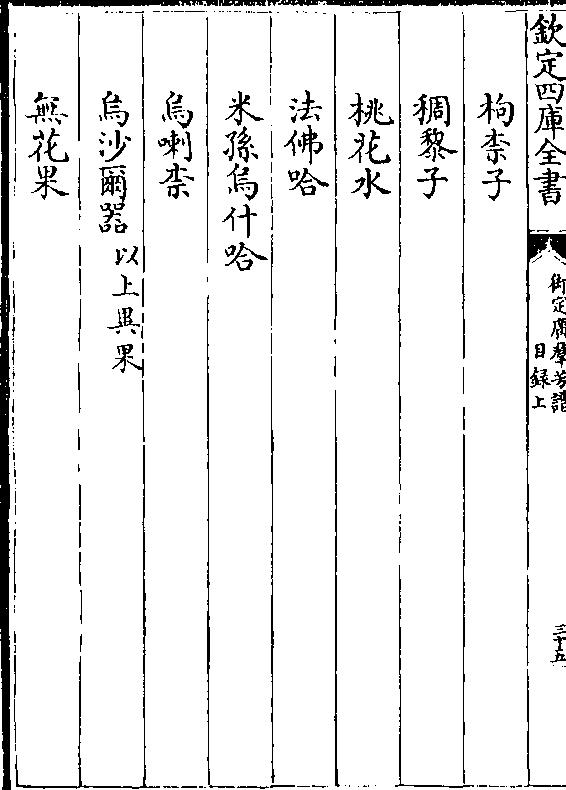 欽定四庫全書
御定廣羣芳譜
目録上
三十五
枸柰子
稠黎子
桃花水
法佛哈
米孫烏什哈
烏喇柰
烏沙爾器以上異果
無花果